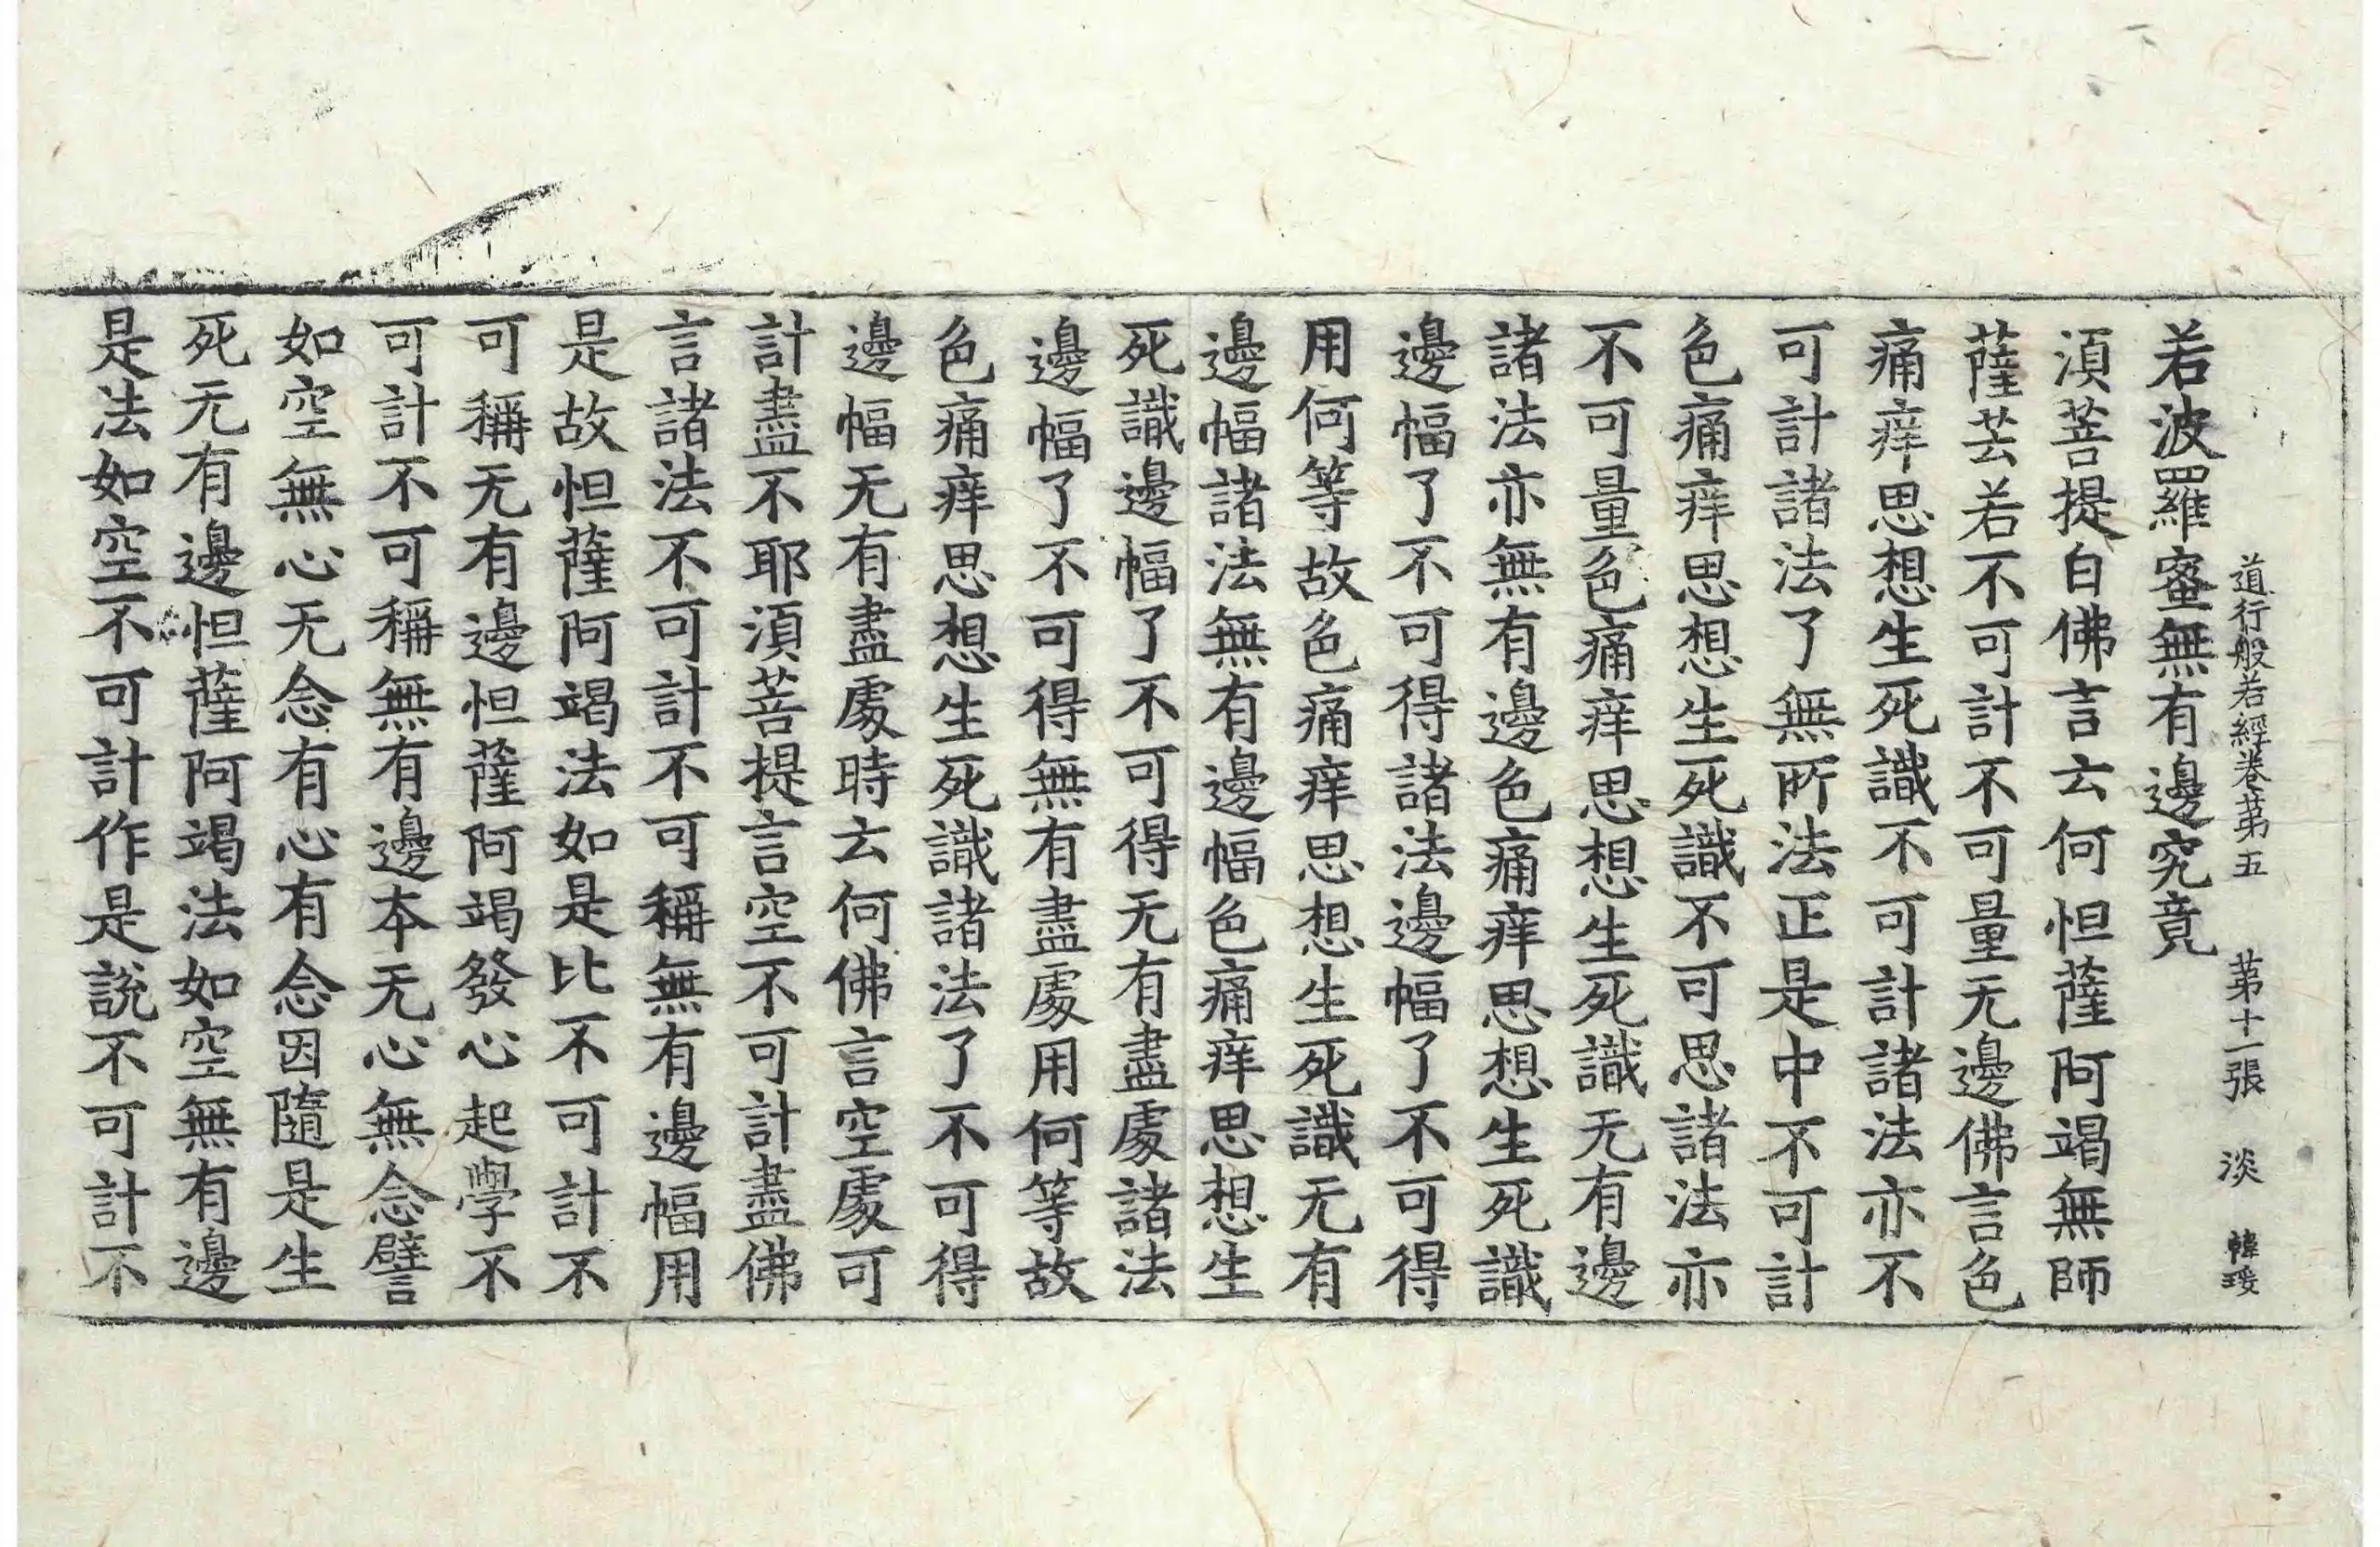 道行般若經卷第五 第十一張 淡 韓瑗
若波羅蜜無有邊究竟
湏菩提白佛言云何怛薩阿竭無師
薩芸若不可計不可量无邊佛言色
痛痒思想生死識不可計諸法亦不
可計諸法了無所法正是中不可計
色痛痒思想生死識不可思諸法亦
不可量色痛痒思想生死識无有邊
諸法亦無有邊色痛痒思想生死識
邊幅了不可得諸法邊幅了不可得
用何等故色痛痒思想生死識无有
邊幅諸法無有邊幅色痛痒思想生
死識邊幅了不可得无有盡處諸法
邊幅了不可得無有盡處用何等故
色痛痒思想生死識諸法了不可得
邊幅无有盡處時云何佛言空處可
計盡不耶湏菩提言空不可計盡佛
言諸法不可計不可稱無有邊幅用
是故怛薩阿竭法如是比不可計不
可稱无有邊怛薩阿竭發心起學不
可計不可稱無有邊本无心無念譬
如空無心无念有心有念因隨是生
死无有邊怛薩阿竭法如空無有邊
是法如空不可計作是說不可計不